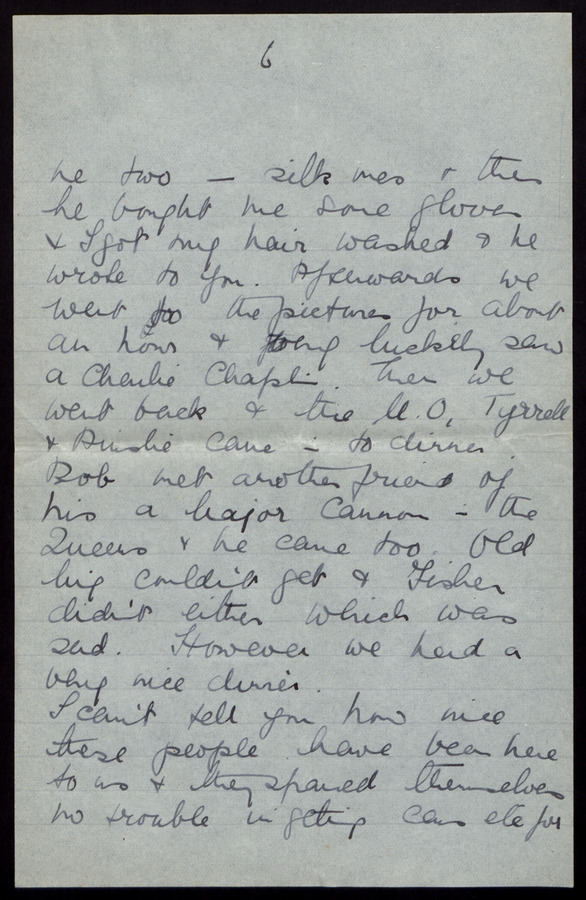 6
me two — silk ones & then
he bought me some gloves
& I got my hair washed & he
wrote to you. Afterwards we
went to the pictures for about
an hour & very luckily saw
a Charlie Chaplin. Then we
went back & the M.O, Tyrrell
& Ainslie came - to dinner.
Bob met another friend of
his a Major Cannon - the
Queens & he came too. Old
couldn't get & Fisher
didn't either which was
sad. However we had a
very nice dinner.
I can't tell you how nice
these people have been here
to us & they spared themselves
no trouble in getting cars etc for